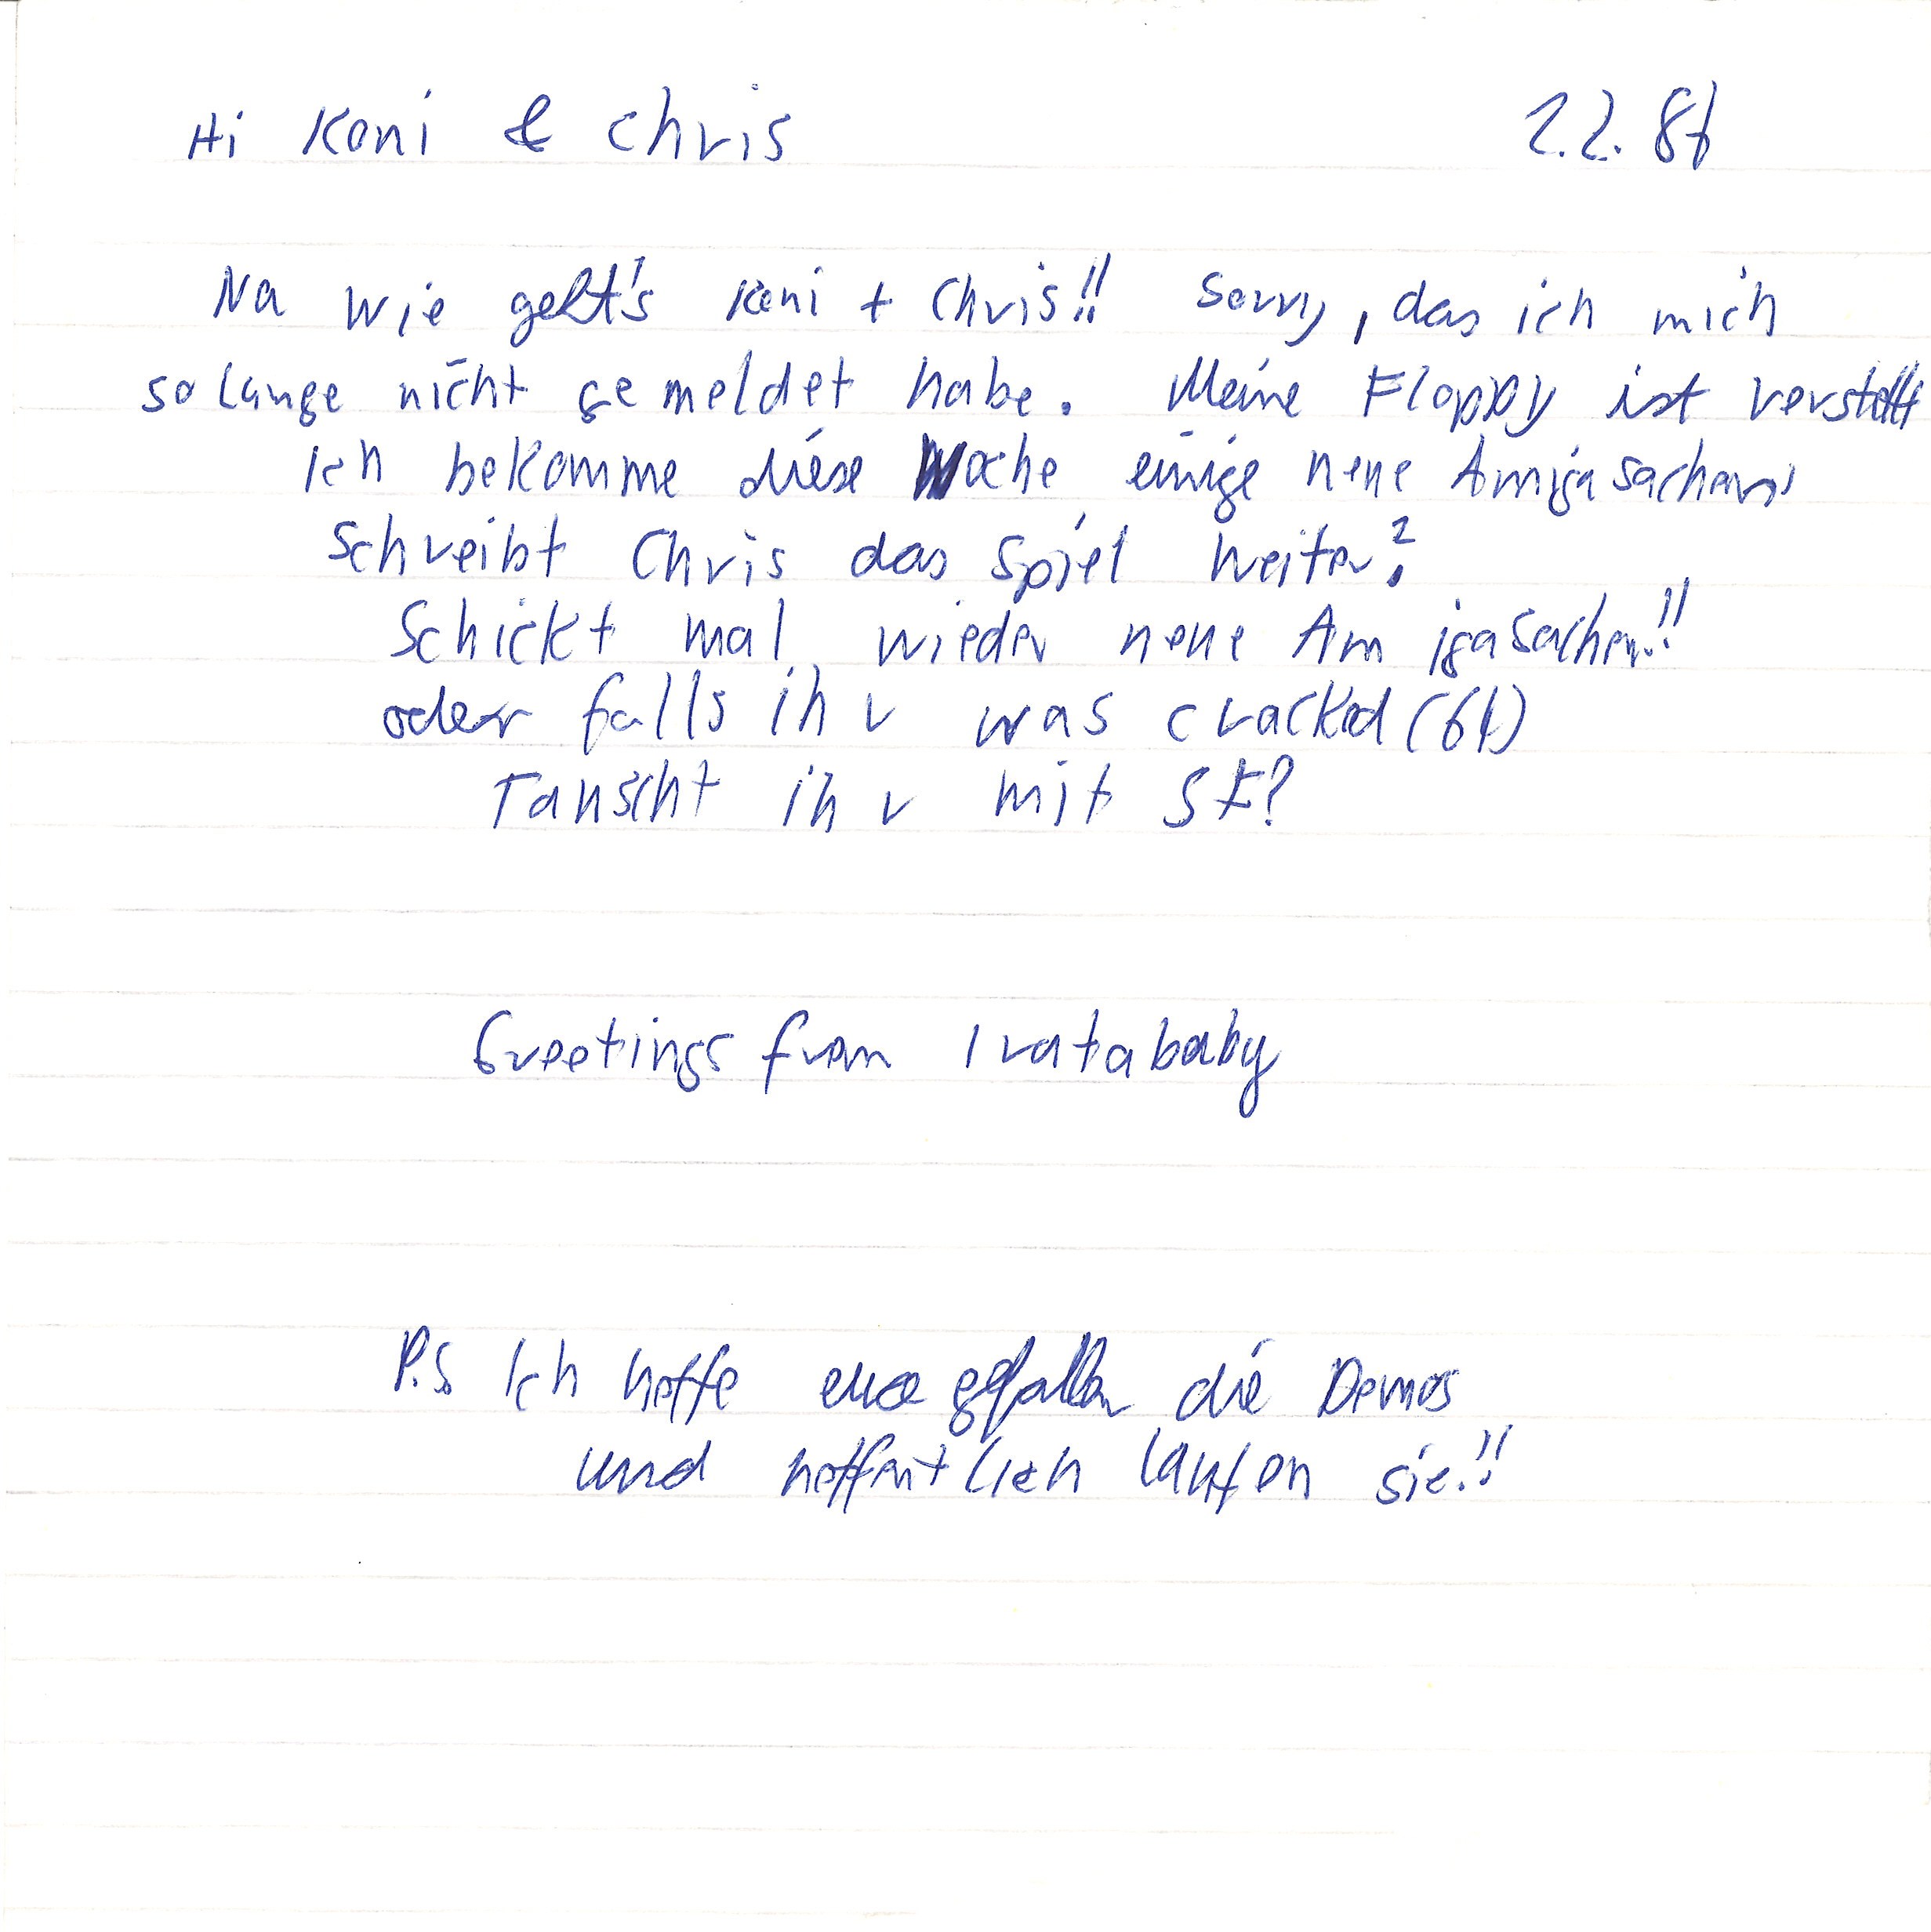 Hi Koni & Chris 2.2.86
Na wie geht's Koni + Chris!! Sorry, das ich mich
so lange nicht gemeldet habe. Meine Floppy ist verstellt
Ich bekomme diese Woche einige neue Amigasachen
Schreibt Chris das Spiel weiter?
Schickt mal wieder neue Amigasachen!!
oder falls ihr was cracked (64)
Tauscht ihr mit ST?
Greetings from Iratababy
P.S Ich hoffe euch gefallen die Demos
und hoffentlich laufen sie!!